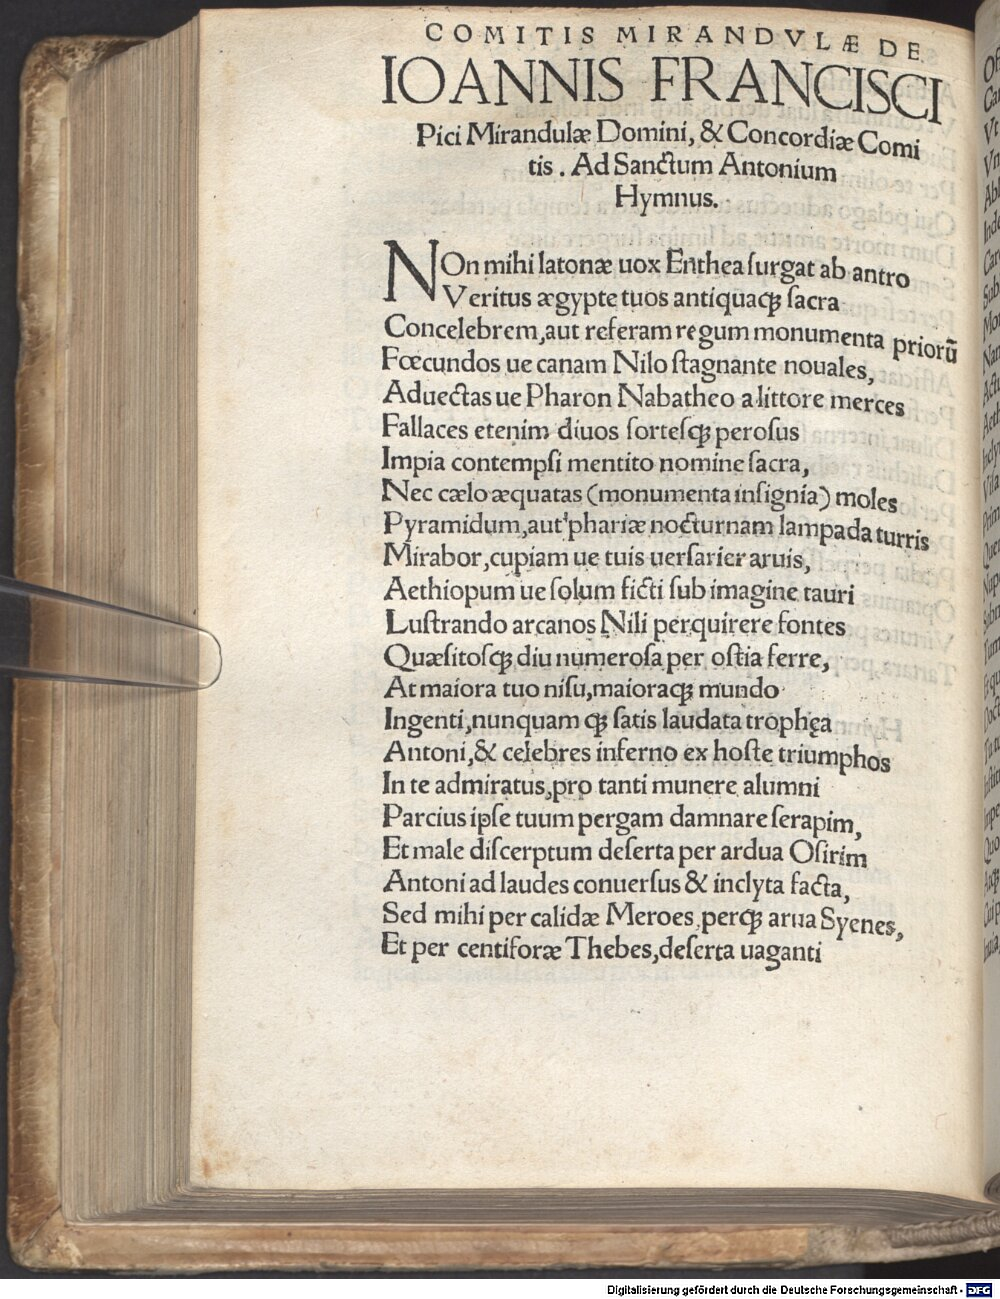 COMITIS MIRANDVLÆ DE
IOANNIS FRANCISCI
Pici Mirandulæ Domini, & Concordiæ Comi
tis . Ad Sanctum Antonium
Hymnus.
NOn mihi latonæ uox Enthea ſurgat ab antro
Veritus ægypte tuos antiquaꝗ ſacra
Concelebrem,aut referam regum monumenta priorū
Fœcundos ue canam Nilo ſtagnante nouales,
Aduectas ue Pharon Nabatheo a littore merces
Fallaces etenim diuos ſorteſꝗ peroſus
Impia contempſi mentito nomine ſacra,
Nec cælo æquatas (monumenta inſignia) moles
Pyramidum,aut phariæ nocturnam lampada turris
Mirabor,cupiam ue tuis uerſarier aruis,
Aethiopum ue ſolum ficti ſub imagine tauri
Luſtrando arcanos Nili perquirere fontes
Quæſitoſꝗ diu numeroſa per oſtia ferre,
At maiora tuo niſu,maioraꝗ mundo
Ingenti,nunquam ꝗ ſatis laudata trophęa
Antoni,& celebres inferno ex hoſte triumphos
In te admiratus,pro tanti munere alumni
Parcius ipſe tuum pergam damnare ſerapim,
Et male diſcerptum deſerta per ardua Oſirim
Antoni ad laudes conuerſus & inclyta facta,
Sed mihi per calidæ Meroes,perꝗ arua Syenes,
Et per centiforæ Thebes,deſerta uaganti
Digitalisierung gefördert durch die Deutsche Forschungsgemeinschaft - DFG